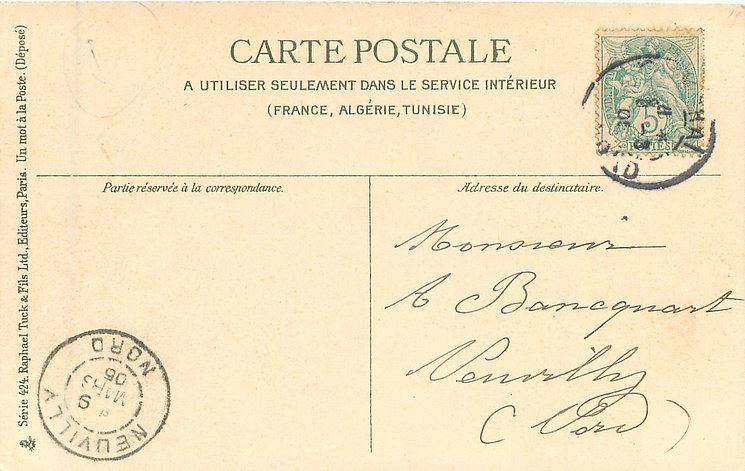 CARTE POSTALE
A UTILISER SEULEMENT DANS LE SERVICE INTÉRIEUR
(FRANCE, ALGÉRIE, TUNISIE)
Partie réservée à la correspondance.
Adresse du destinataire.
Monsieur
A Bancquart
Neuvilly
(Nord)
Série 424. Raphael Tuck & Fils Ltd., Editeurs, Paris. Un mot à la Poste. (Déposé)
5c
POSTES
NEUVILLY
9
MARS
05
NORD